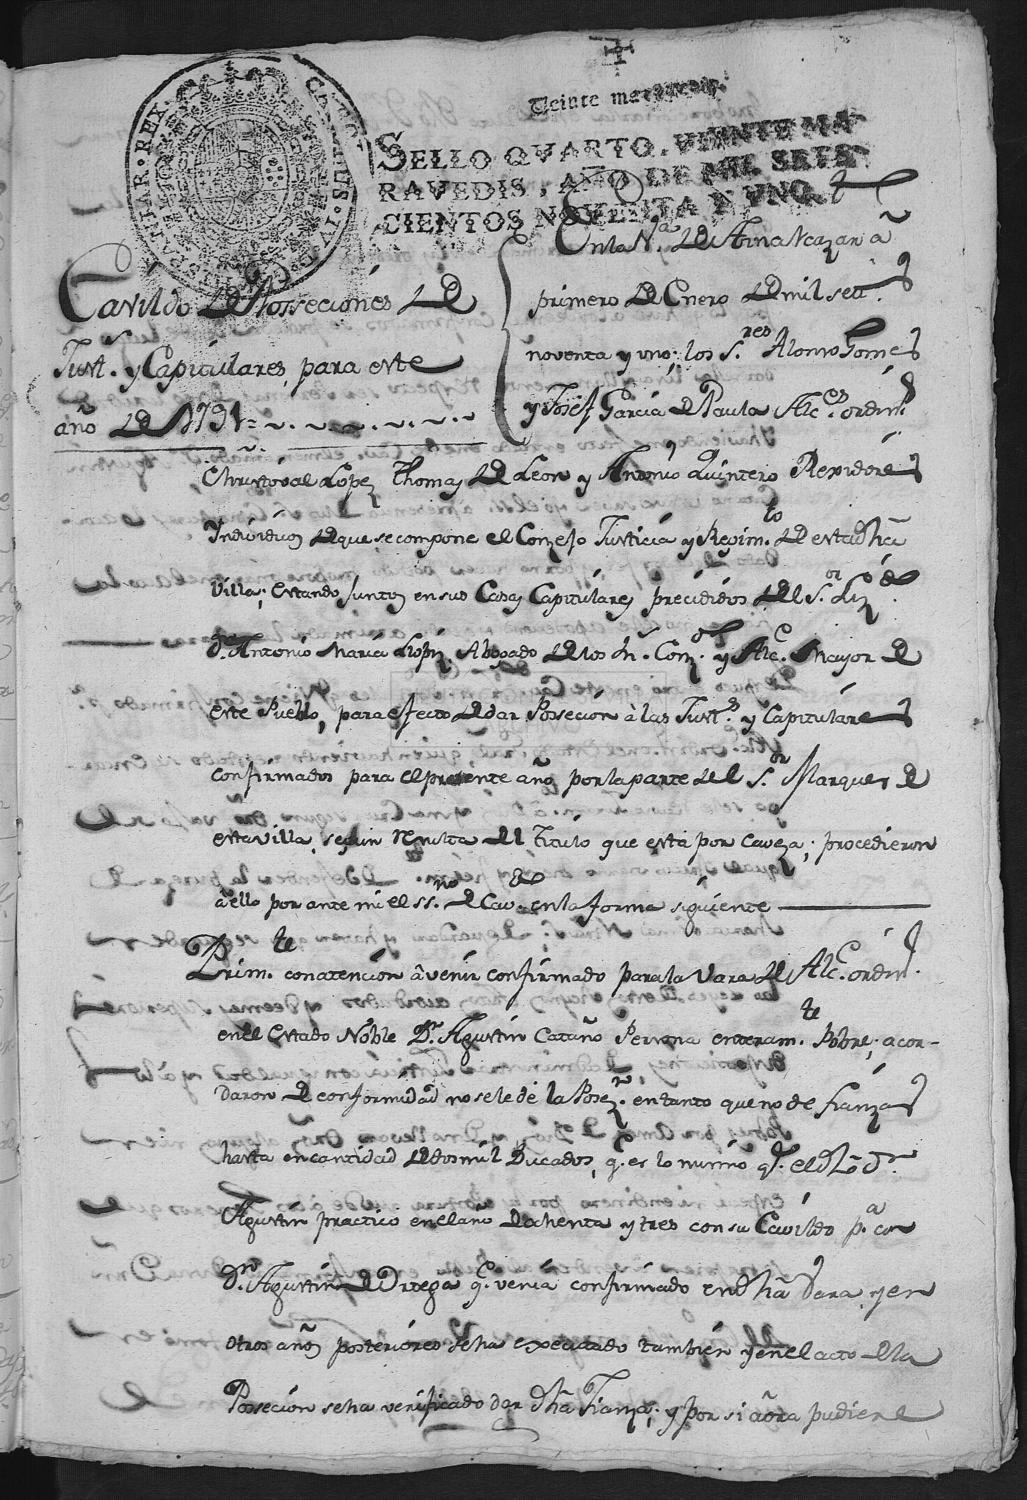 Veinte maravedis.
SELLO QVARTO, VEINTE MA-
RAVEDIS, AÑO DE MIL SETE-
CIENTOS NOVENTA Y UNO.
CAROLUS IV D.G. HISPANIAR. REX
Cavildo de Posseciones de
Just.s y Capitulares, para este
año de 1791=
En la V.a de Aznalcazar a
primero de Enero de mil set.s
noventa y uno: los S.res Alonso Gomes
y Josef Garcia de Paula Alc.es ordin.s
Christoval Lopez Thomas de Leon y Antonio Quintero Rexidores
Individuos de que se compone el Conzejo Justicia y Regim.to de esta dha
Villa; estando juntos en sus Casas Capitulares precididos del S.or Liz.do
d.n Antonio Maria Lopez Abogado de los R.s Conz.s y Alc.e Mayor de
este Pueblo, para efecto de dar Posecion à las Just.s y Capitulares
confirmados para el presente año por la parte del S.or Marques de
esta villa, segun resulta del Titulo que està por caveza; procedieron
a ello por ante mi el ss.no de Cav.do en la forma siguiente
Prim.te con atencion â venir confirmado para la vara de Alc.e ordin.o
en el Estado Noble D.n Agustin Cataño Persona enteram.te Pobre; acor-
daron de conformidad no se le dè la Posez.n en tanto que no de fianzas
hasta en cantidad de dos mil Ducados, q.e es lo mismo q.e el dho D.n
Agustin practico en el año de ochenta y tres con su Cavildo p.a con
D.n Agustin de Ortega q.e venia confirmado en dha Vara y en
otros años posteriores se ha executado tambien y en el acto de la
Posecion se ha verificado dar dha Fianza; y por si aora pudiere